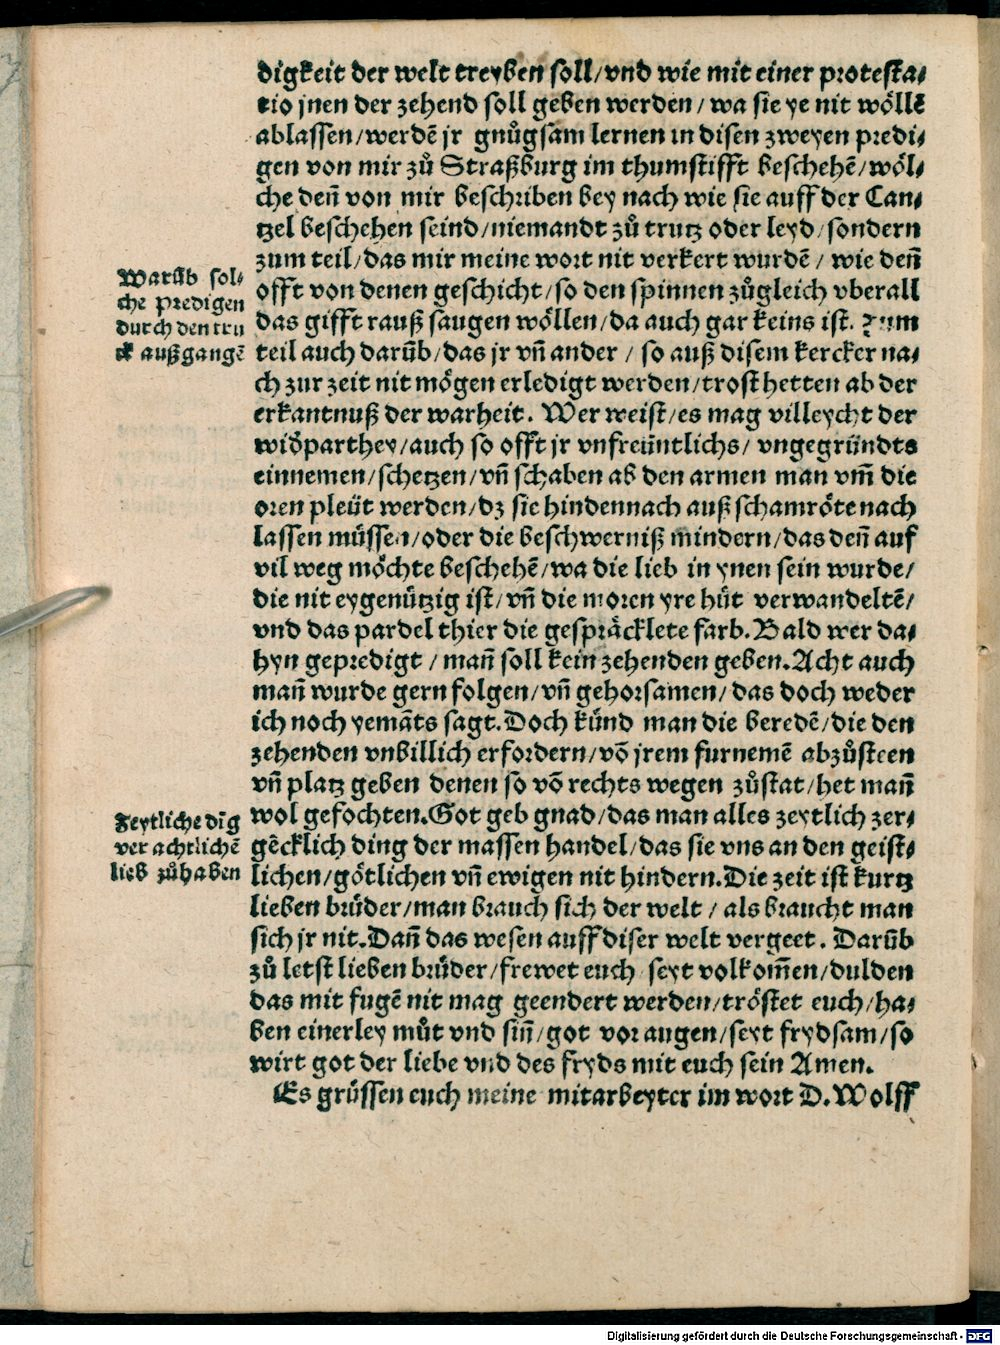 digkeit der welt treyben soll/vnd wie mit einer protesta⸗
tio jnen der zehend soll geben werden/wa sie ye nit wöllē
ablassen/werdē jr gnůgsam lernen in disen zweyen predi⸗
gen von mir zů Straßburg im thumstifft beschehē/wöl⸗
che deñ von mir beschriben bey nach wie sie auff der Can⸗
tzel beschehen seind/niemandt zů trutz oder leyd/sondern
zum teil/das mir meine wort nit verkert wurdē/wie deñ
offt von denen geschicht/so den spinnen zůgleich vberall
das gifft rauß saugen wöllen/da auch gar keins ist. Zum
teil auch darūb/das jr vñ ander/so auß disem kercker na⸗
ch zur zeit nit mögen erledigt werden/trost hetten ab der
erkantnuß der warheit. Wer weist/es mag villeycht der
widparthey/auch so offt jr vnfreüntlichs/vngegründts
einnemen/schetzen/vñ schaben ab den armen man vm̄ die
oren pleüt werden/dz sie hindennach auß schamröte nach
lassen müssen/oder die beschwerniß mindern/das deñ auf
vil weg möchte beschehē/wa die lieb in ynen sein wurde/
die nit eygenützig ist/vñ die moren yre hüt verwandeltē/
vnd das pardel thier die gespräcklete farb. Bald wer da⸗
hyn gepredigt/mañ soll kein zehenden geben. Acht auch
mañ wurde gern folgen/vñ gehorsamen/das doch weder
ich noch yemāts sagt. Doch künd man die beredē/die den
zehenden vnbillich erfordern/vō jrem furnemē abzůsteen
vñ platz geben denen so vō rechts wegen zůstat/het mañ
wol gefochten. Got geb gnad/das man alles zeytlich zer⸗
gēcklich ding der massen handel/das sie vns an den geist⸗
lichen/götlichen vñ ewigen nit hindern. Die zeit ist kurtz
lieben brüder/man brauch sich der welt/als braucht man
sich jr nit. Dañ das wesen auff diser welt vergeet. Darūb
zů letst lieben brüder/frewet euch seyt volkom̄en/dulden
das mit fugē nit mag geendert werden/tröstet euch/ha⸗
ben einerley můt vnd siñ/got vor augen/seyt frydsam/so
wirt got der liebe vnd des fryds mit euch sein Amen.
Es grüssen euch meine mitarbeyter im wort D. Wolff
Warūb sol⸗
che predigen
durch den tru
ck außgangē
Zeytliche dīg
verachtlichē
lieb zůhaben
Digitalisierung gefördert durch die Deutsche Forschungsgemeinschaft - DFG